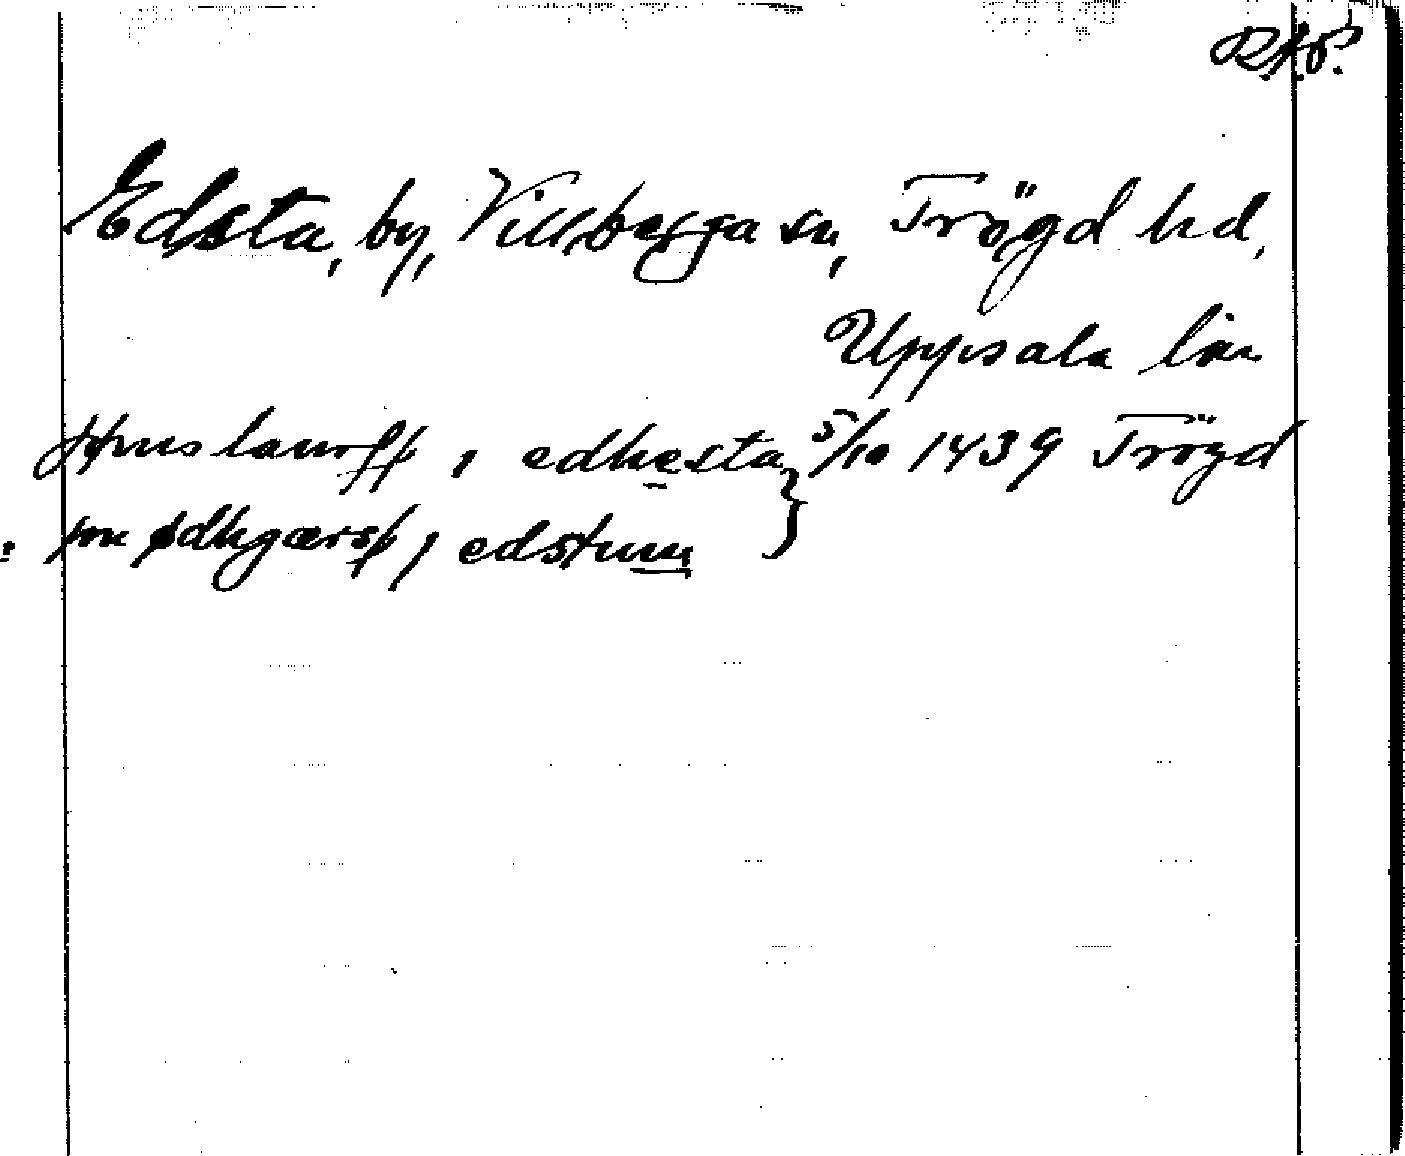 R.A.P.
Edsta, by, Villberga sn, Trögd hd,
Uppsala län
laurssþ, i edhesta } 5/10 1439 Trögd
: jon ødhgærsþ, i edstum